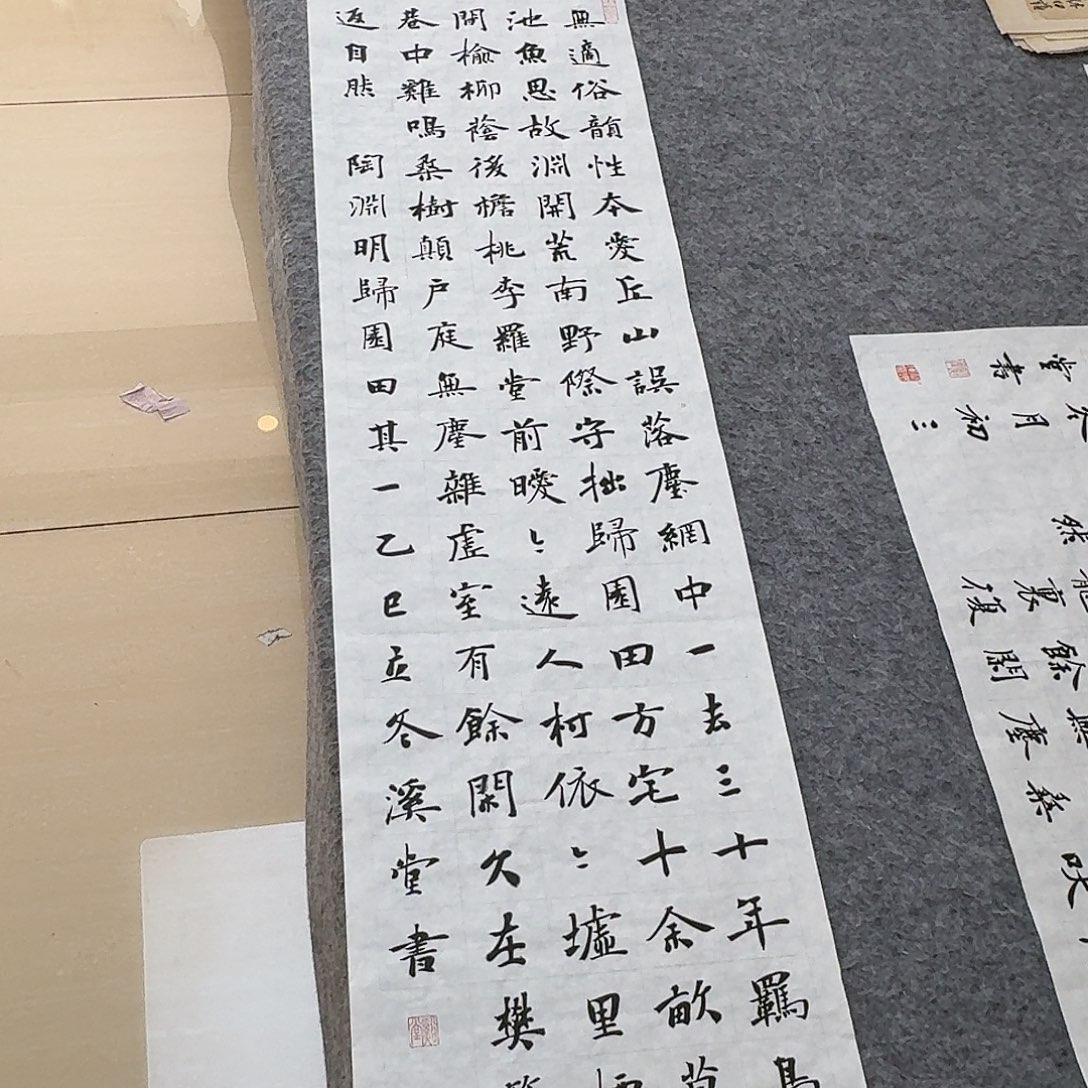 無適俗韻性本愛丘山誤落塵網中一去三十年羈鳥
池魚思故淵開荒南野際守拙歸園田方宅十余畝草
間榆柳蔭後檐桃李羅堂前曖〻遠人村依〻墟里煙
巷中雞鳴桑樹顛戶庭無塵雜虛室有餘閑久在樊籠
返自然 陶淵明歸園田其一乙巳立冬溪堂書
吠
桑
無塵
餘閑
籠裏復
然
冬月初三
堂書